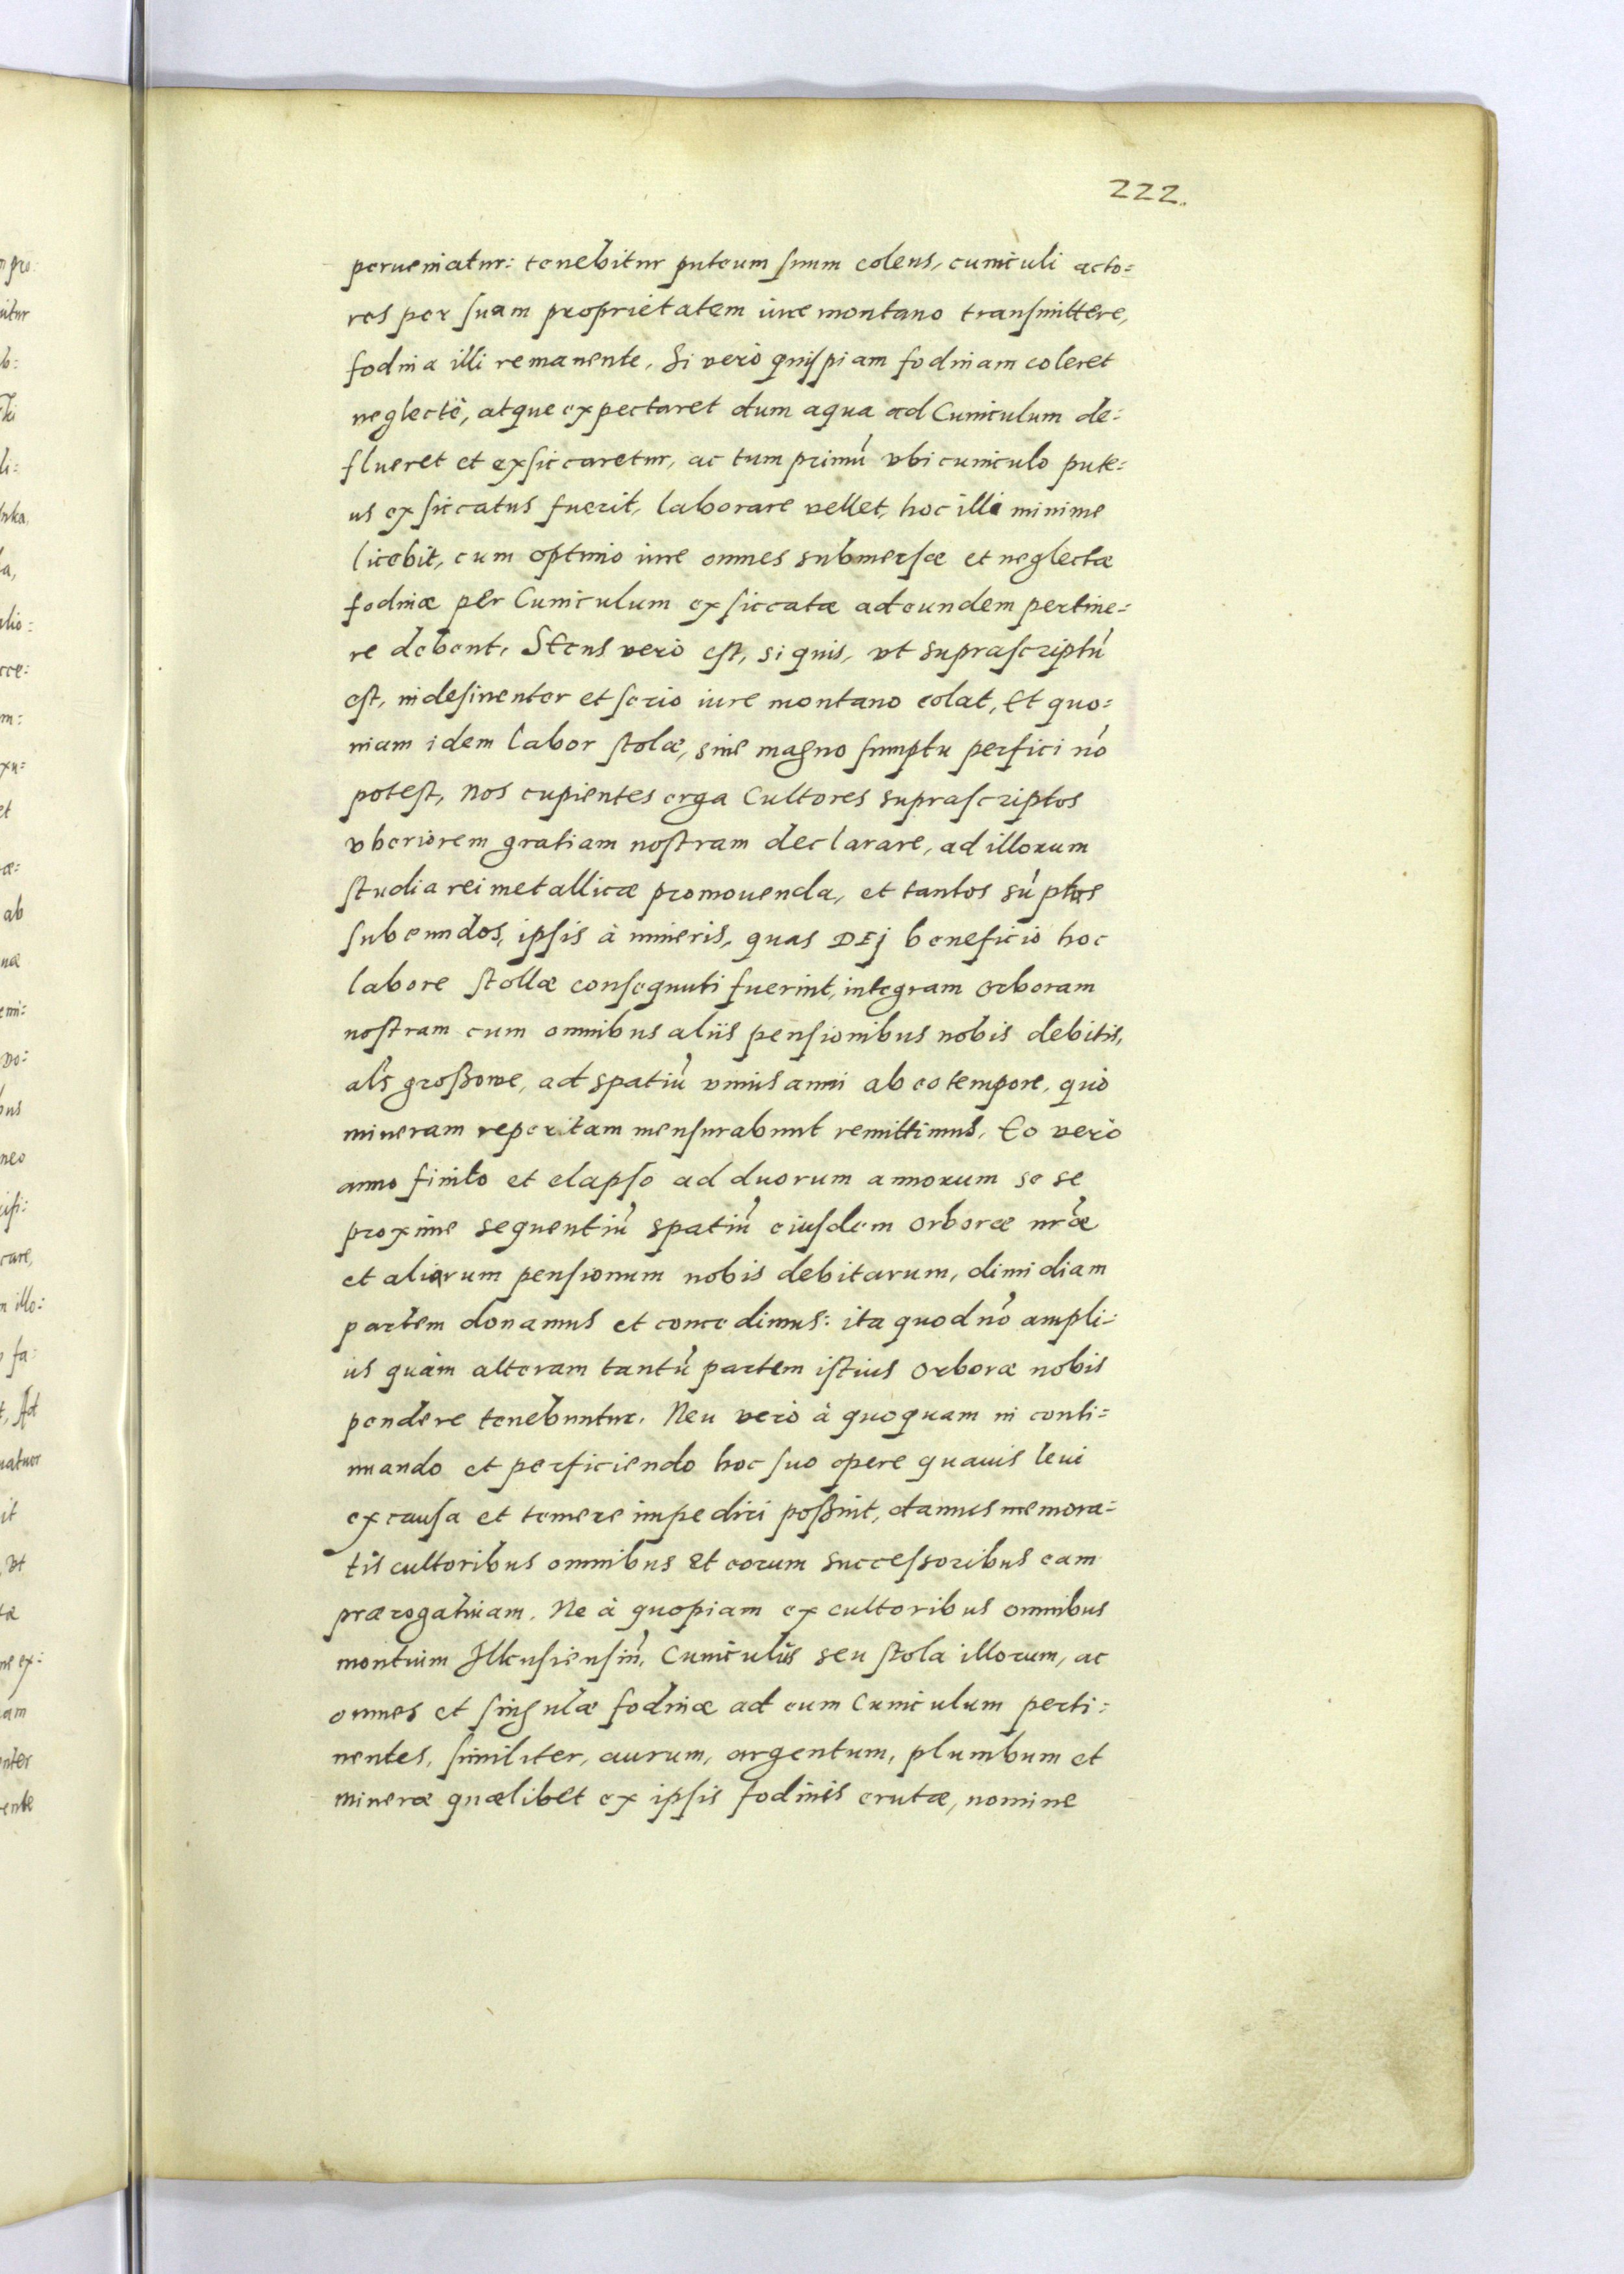 222.
perueniatur: tenebitur puteum suum colens, cuniculi acto=
res per suam proprietatem iure montano transmittere,
fodina illi remanente. Si verò quispiam fodinam coleret
neglectè, atque expectaret dum aqua ad Cuniculum de=
flueret et exsiccaretur, ac tum primũ vbi cuniculo pute=
us exsiccatus fuerit, laborare vellet, hoc illi minime
licebit, cum optimo iure omnes submersæ et neglectæ
fodinæ per Cuniculum exsiccatæ ad eundem pertine=
re debent. Secus verò est, si quis, vt suprascriptũ
est, indesinenter et serio iure montano colat. Et quo=
niam idem labor stolæ, sine magno sumptu perfici nõ
potest, Nos cupientes erga Cultores suprascriptos
vberiorem gratiam nostram declarare, ad illorum
studia rei metallicæ promouenda, et tantos sũptus
subeundos, ipsis à mineris, quas DEj beneficio hoc
labore stollæ consequuti fuerint, integram orboram
nostram cum omnibus aliis pensionibus nobis debitis,
als großowe, ad spatiũ vnius anni ab eo tempore, quo
mineram repertam mensurabunt remittimus. Eo verò
anno finito et elapso ad duorum annorum se se
proxime sequentiũ spatiũ eiusdem orboræ nr̃æ
et aliarum pensionum nobis debitarum, dimidiam
partem donamus et concedimus: ita quod nõ ampli=
us quàm alteram tantũ partem istius orboræ nobis
pendere tenebuntur. Neu verò à quoquam in conti=
nuando et perficiendo hoc suo opere quauis leui
ex causa et temere impediri poßint, damus memora=
tis cultoribus omnibus et eorum successoribus eam
prærogatiuam. Ne à quopiam ex cultoribus omnibus
montium Ilkusiensiũ, Cuniculus seu stola illorum, ac
omnes et singulæ fodinæ ad eum Cuniculum perti=
nentes, similiter, aurum, argentum, plumbum et
mineræ quælibet ex ipsis fodinis erutæ, nomine